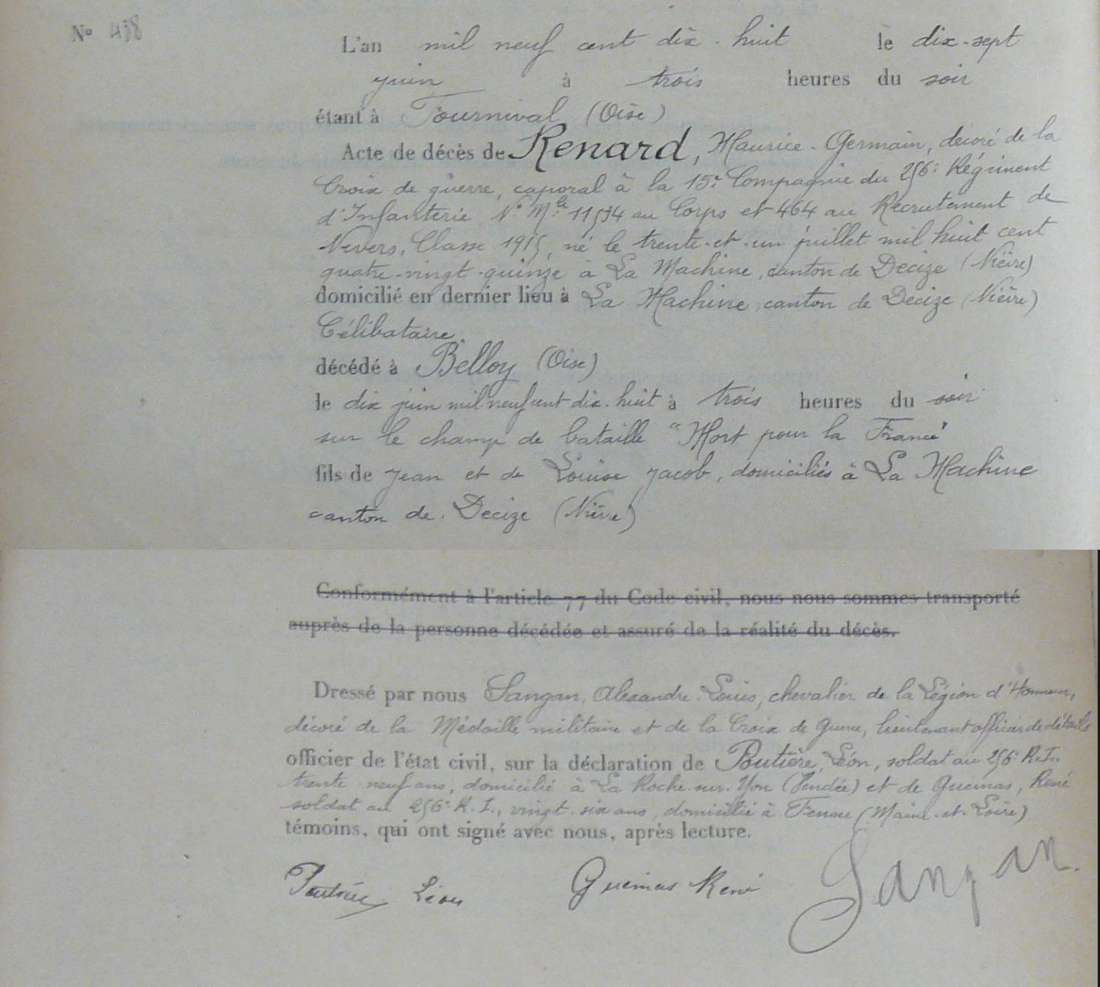 N° 438
L'an mil neuf cent dix-huit le dix-sept
juin à trois heures du soir
étant à Fournival (Oise)
Acte de décès de Renard, Maurice-Germain, décoré de la
Croix de guerre, caporal à la 15e Compagnie du 256e Régiment
d'Infanterie N° Mle 11534 au Corps et 464 au Recrutement de
Nevers, Classe 1915, né le trente-et-un juillet mil huit cent
quatre-vingt-quinze à La Machine, canton de Decize (Nièvre)
domicilié en dernier lieu à La Machine, canton de Decize (Nièvre)
Célibataire.
décédé à Belloy (Oise)
le dix juin mil neuf cent dix-huit à trois heures du soir
sur le champ de bataille "Mort pour la France"
fils de Jean et de Louise Jacob, domiciliés à La Machine
canton de Decize (Nièvre)
Conformément à l'article 77 du Code civil, nous nous sommes transporté
auprès de la personne décédée et assuré de la réalité du décès.
Dressé par nous Sangan, Alexandre-Louis, chevalier de la Légion d'Honneur,
décoré de la Médaille militaire et de la Croix de Guerre, lieutenant officier de détails
officier de l'état civil, sur la déclaration de Poutière, Léon, soldat au 256e R.I.
trente neuf ans, domicilié à La Roche-sur-Yon (Vendée) et de Guemas, René
soldat au 256e R.I., vingt-six ans, domicilié à (Maine-et-Loire)
témoins, qui ont signé avec nous, après lecture.
Poutière Léon Guemas René Sangan.